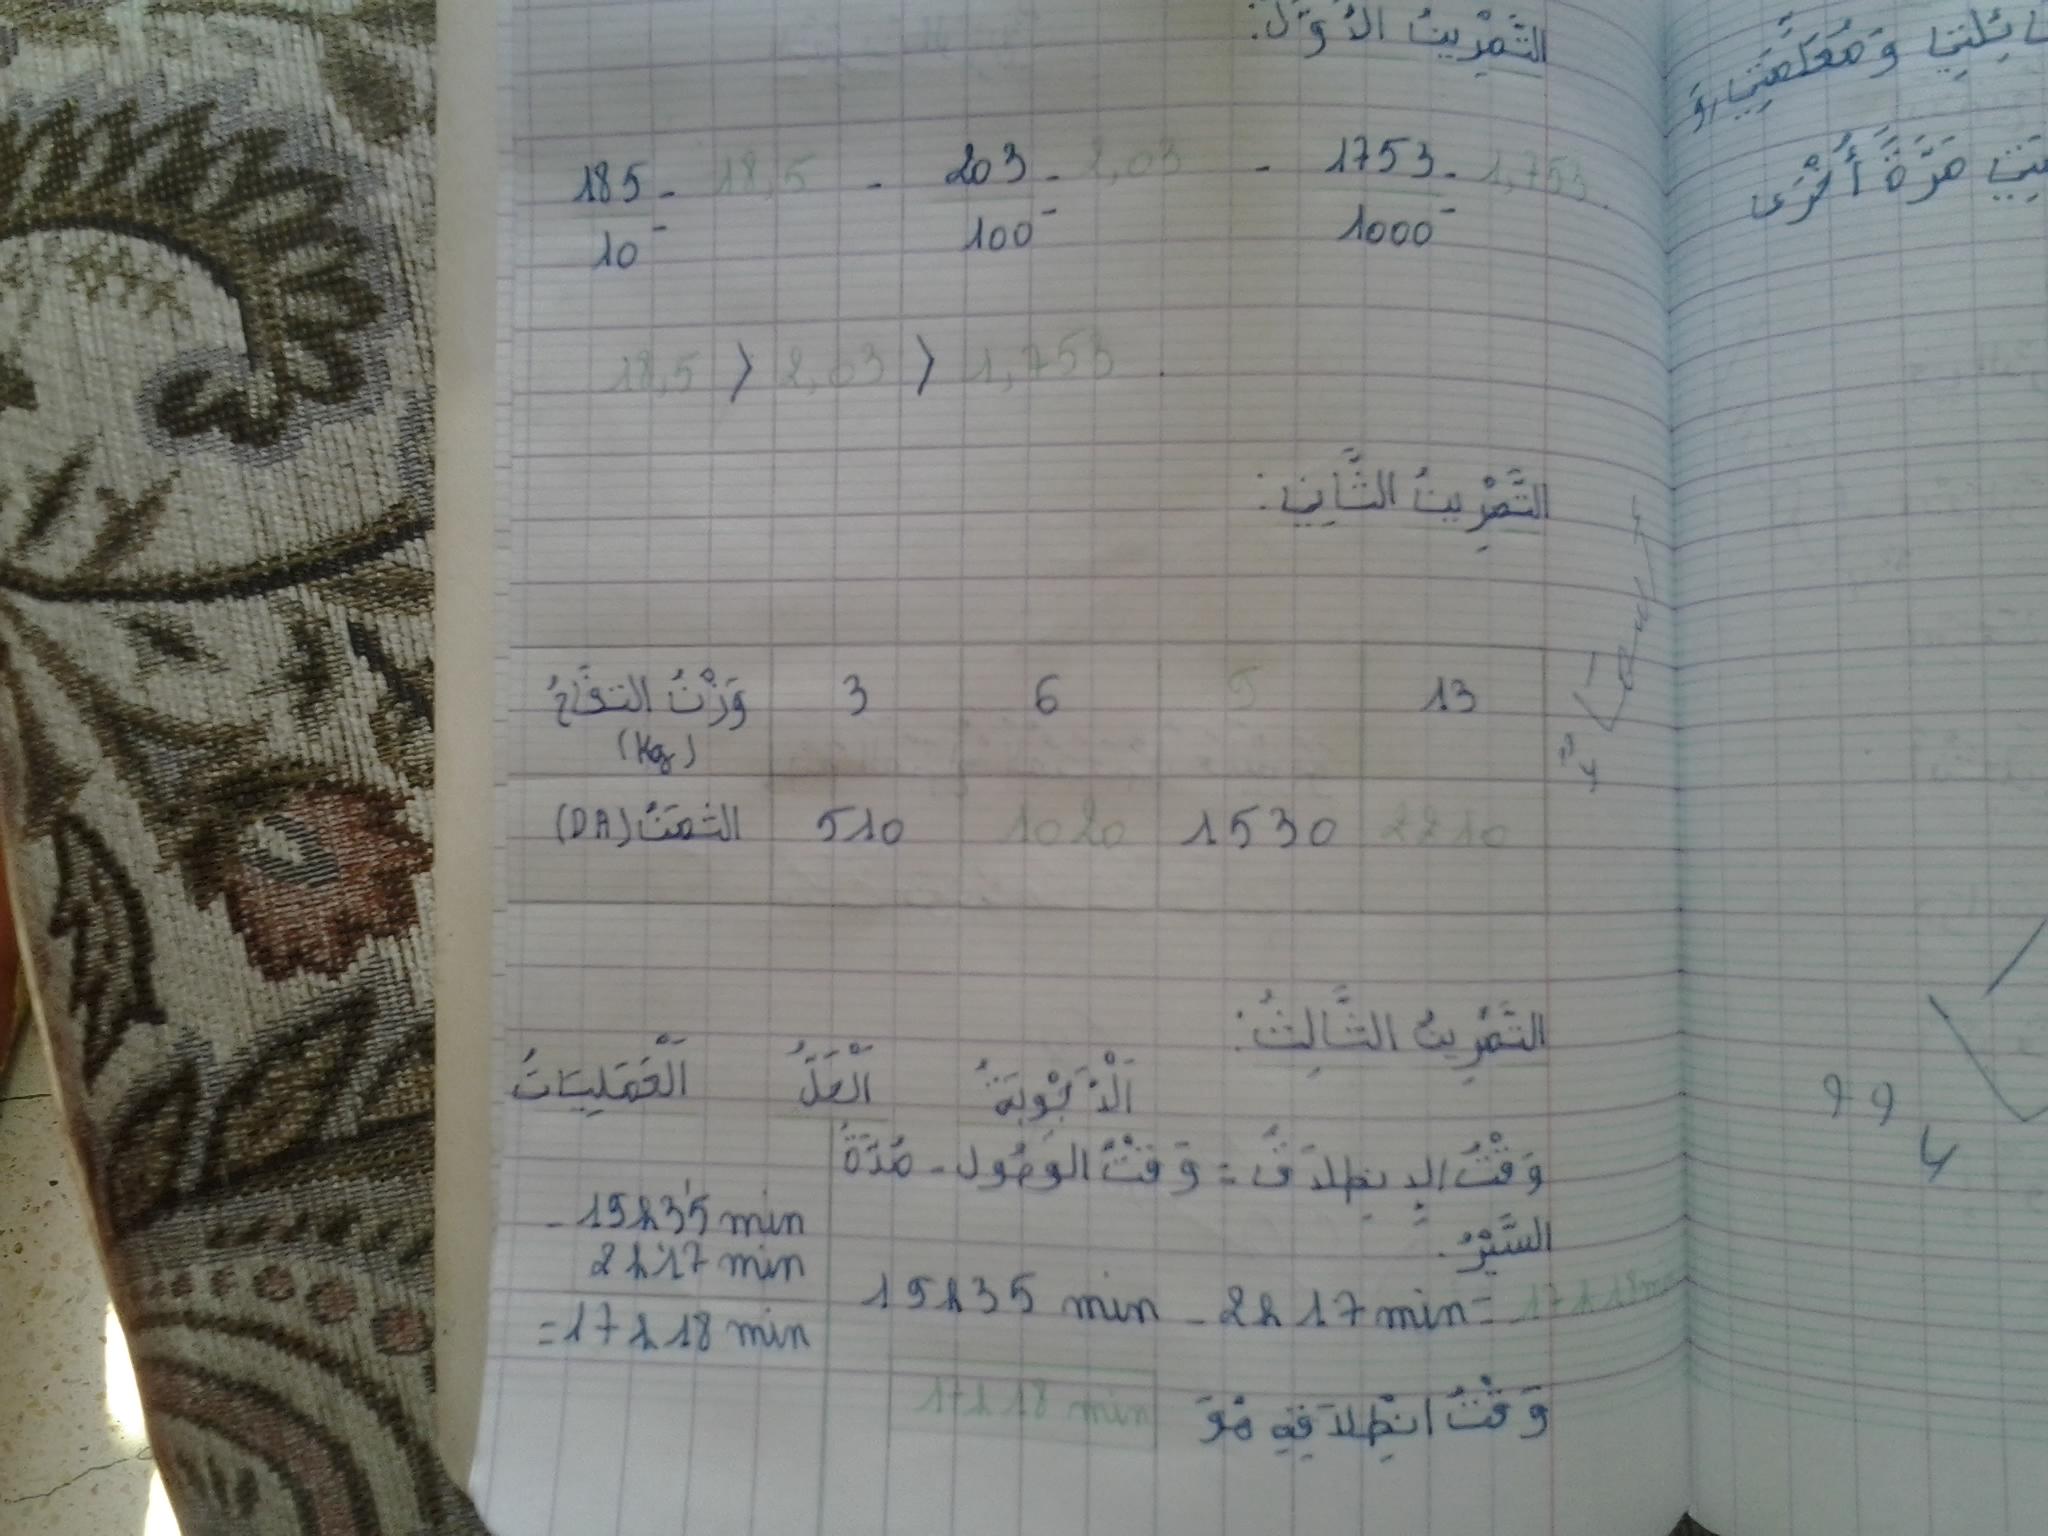 التَّمْرِينُ الأَوَّلُ:
185/10 = 18,5 - 203/100 = 2,03 - 1753/1000 = 1,753.
18,5 > 2,03 > 1,753.
التَّمْرِينُ الثَّانِي:
وَزْنُ التفَّاحُ (Kg) 3 6 13
الثمَنُ (DA) 510 1020 1530 2210
التَّمْرِينُ الثَّالِثُ:
اَلْعَمَلِيَاتُ اَلْحَلُّ
وَقْتُ الإِنطِلاَقُ = وَقْتُ الوُصُول - مُدَّةُ
السَّيْرُ.
19h35 min - 2h17 min = 17h18min
وَقْتُ انطِلاَقِهِ هُوَ 17h18 min
- 19h35 min
2h17 min
= 17h18 min
مَرَّةً أُخْرَى